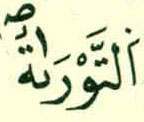 اَلتَّوْرَىٰةَ